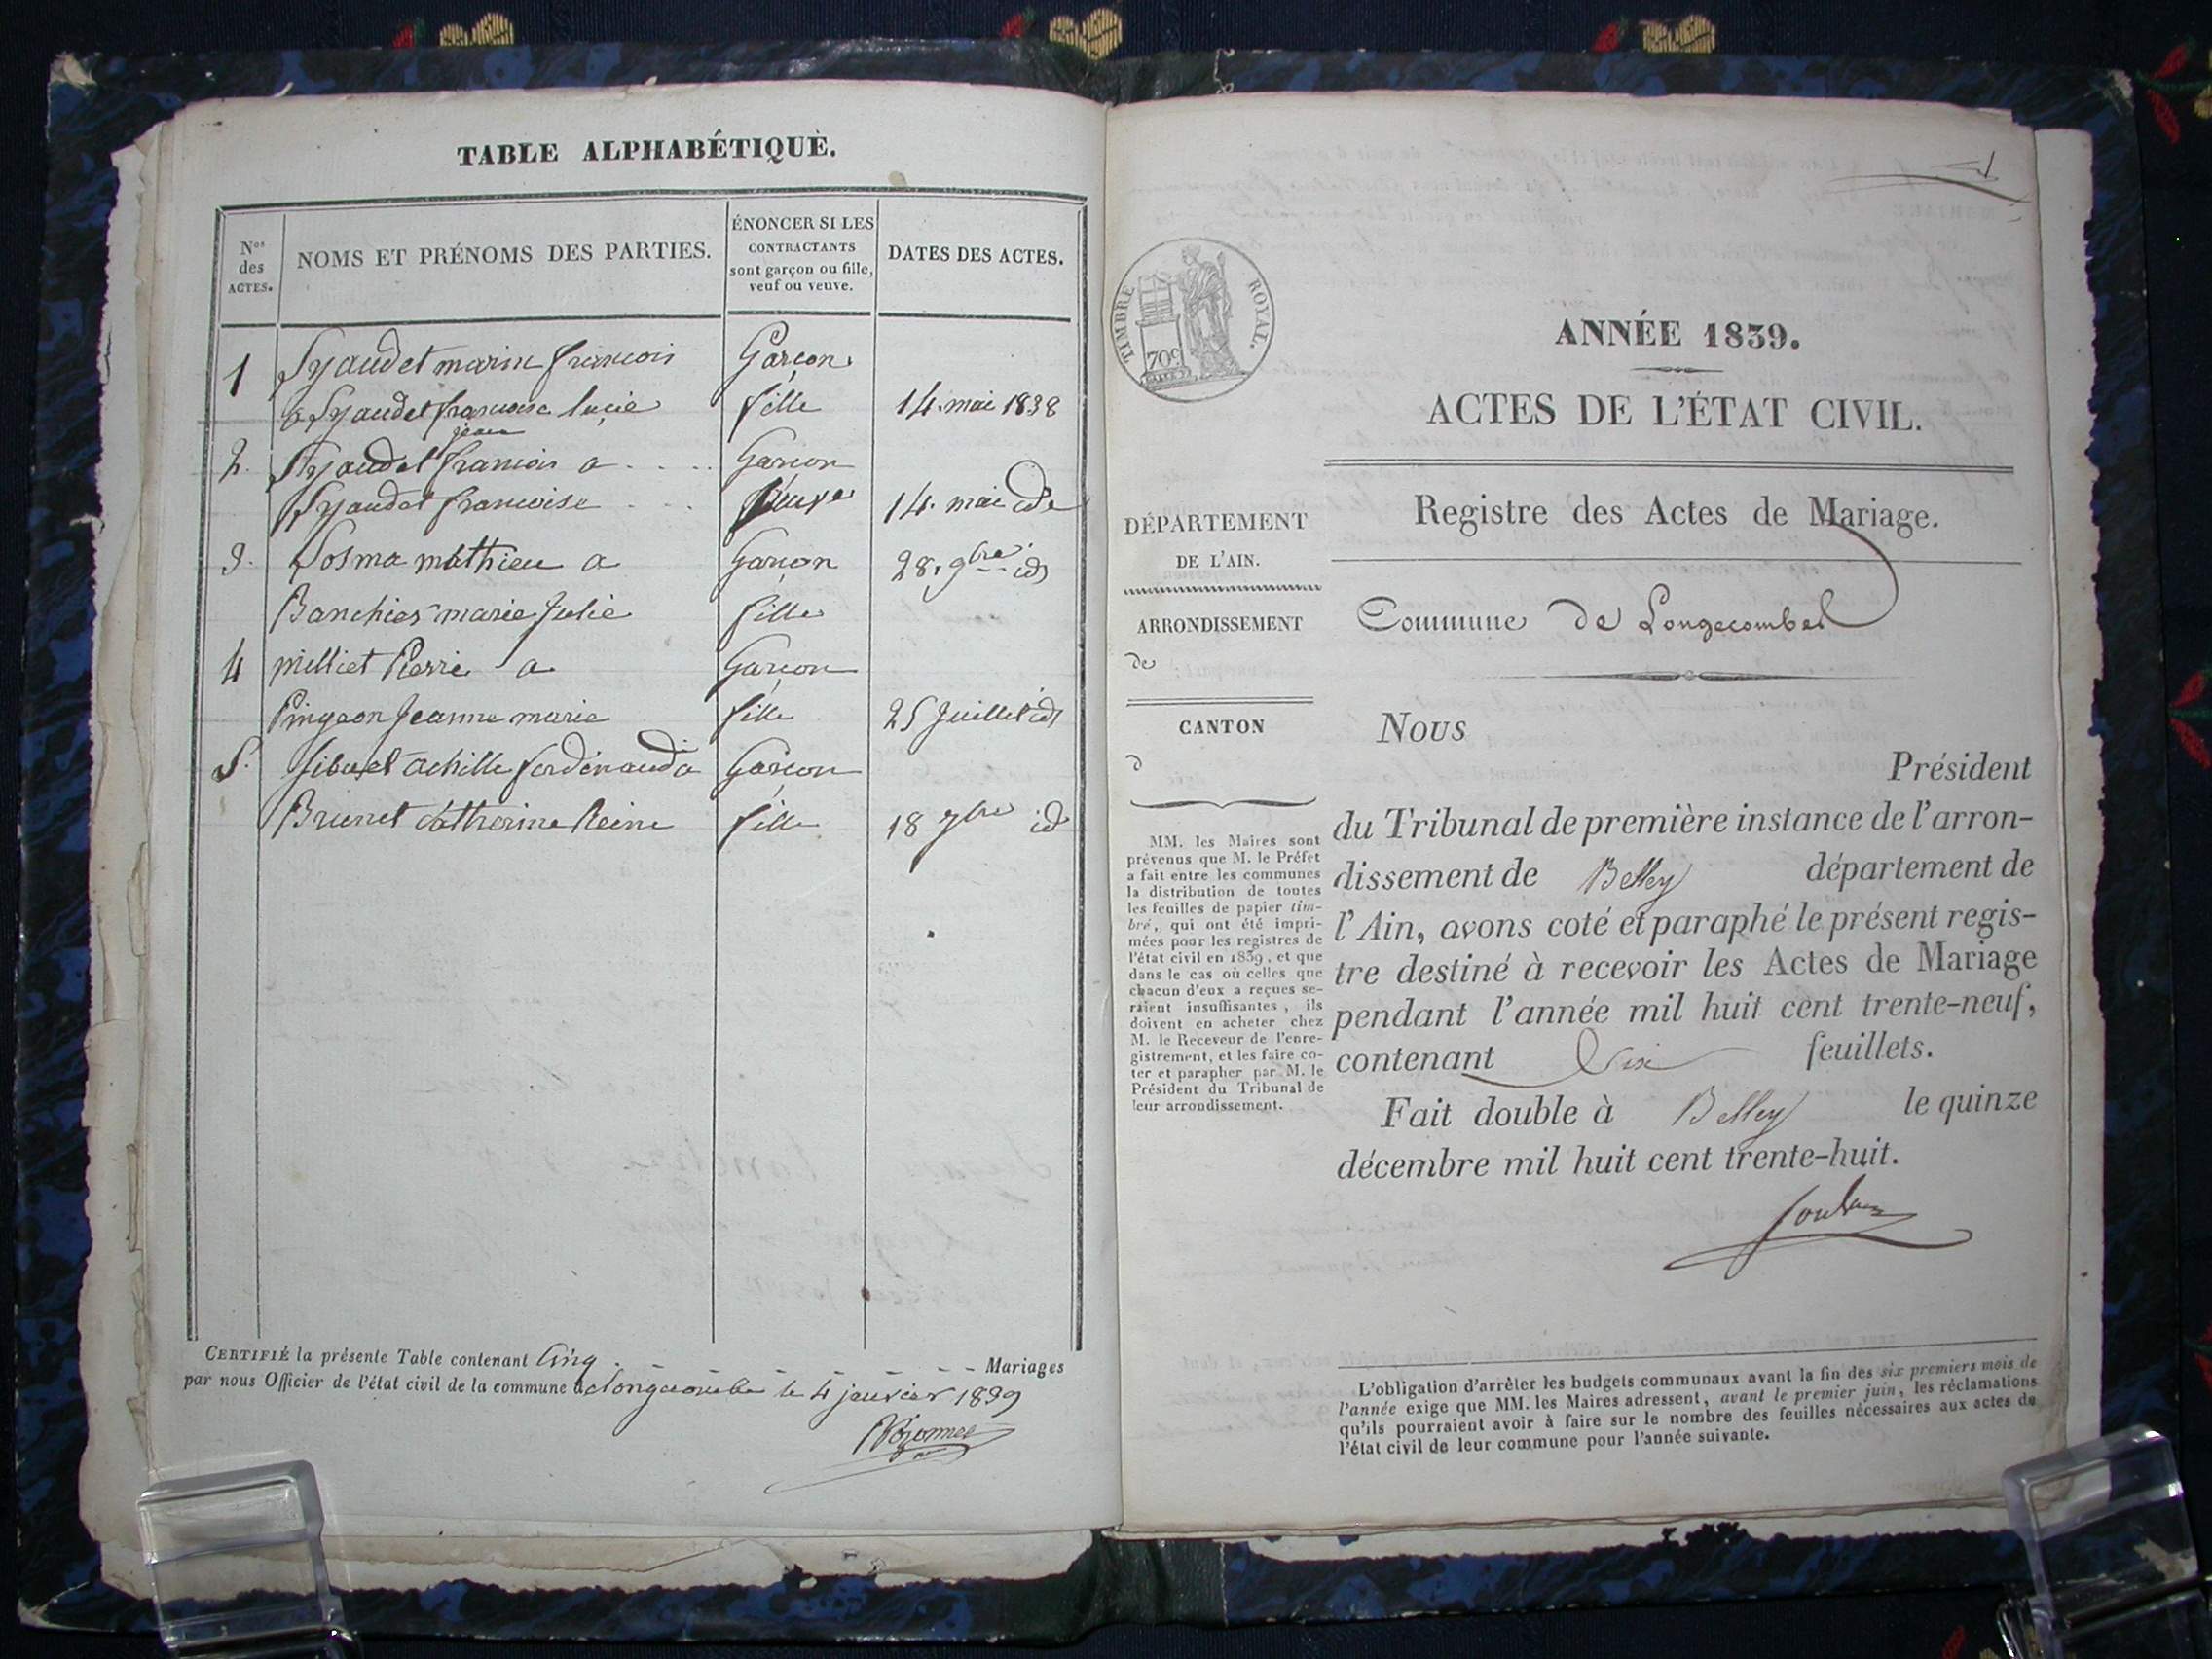 TABLE ALPHABÉTIQUE.
Nos des ACTES.
NOMS ET PRÉNOMS DES PARTIES.
ÉNONCER SI LES
CONTRACTANTS
sont garçon ou fille,
veuf ou veuve.
DATES DES ACTES.
1 marin francois Garçon
a francoise lucie fille 14. mai 1838
jean
2. francois a Garcon
francoise veuve 14. mai
3. mathieu a Garcon 28. 9bre id
marie Julie fille
4 milliet Pierre a Garcon
Pingeon Jeanne marie fille 25 Juillet id
5. achille ferdénand a Garcon
Brunet Catherine Reine fille 18 7bre id
CERTIFIÉ la présente Table contenant Cinq Mariages
par nous Officier de l'état civil de la commune de Longecombe le 4 janvier 1839
1
TIMBRE ROYAL.
70c
ANNÉE 1839.
ACTES DE L'ÉTAT CIVIL.
Registre des Actes de Mariage.
Commune de Longecombe
DÉPARTEMENT
DE L'AIN.
ARRONDISSEMENT
de
CANTON
d
MM. les Maires sont
prévenus que M. le Préfet
a fait entre les communes
la distribution de toutes
les feuilles de papier tim-
bré, qui ont été impri-
mées pour les registres de
l'état civil en 1839, et que
dans le cas où celles que
chacun d'eux a reçues se-
raient insuffisantes, ils
doivent en acheter chez
M. le Receveur de l'enre-
gistrement, et les faire co-
ter et parapher par M. le
Président du Tribunal de
leur arrondissement.
Nous
Président
du Tribunal de première instance de l'arron-
dissement de Belley département de
l'Ain, avons coté et paraphé le présent regis-
tre destiné à recevoir les Actes de Mariage
pendant l'année mil huit cent trente-neuf,
contenant feuillets.
Fait double à Belley le quinze
décembre mil huit cent trente-huit.
L'obligation d'arrêter les budgets communaux avant la fin des six premiers mois de
l'année exige que MM. les Maires adressent, avant le premier juin, les réclamations
qu'ils pourraient avoir à faire sur le nombre des feuilles nécessaires aux actes de
l'état civil de leur commune pour l'année suivante.